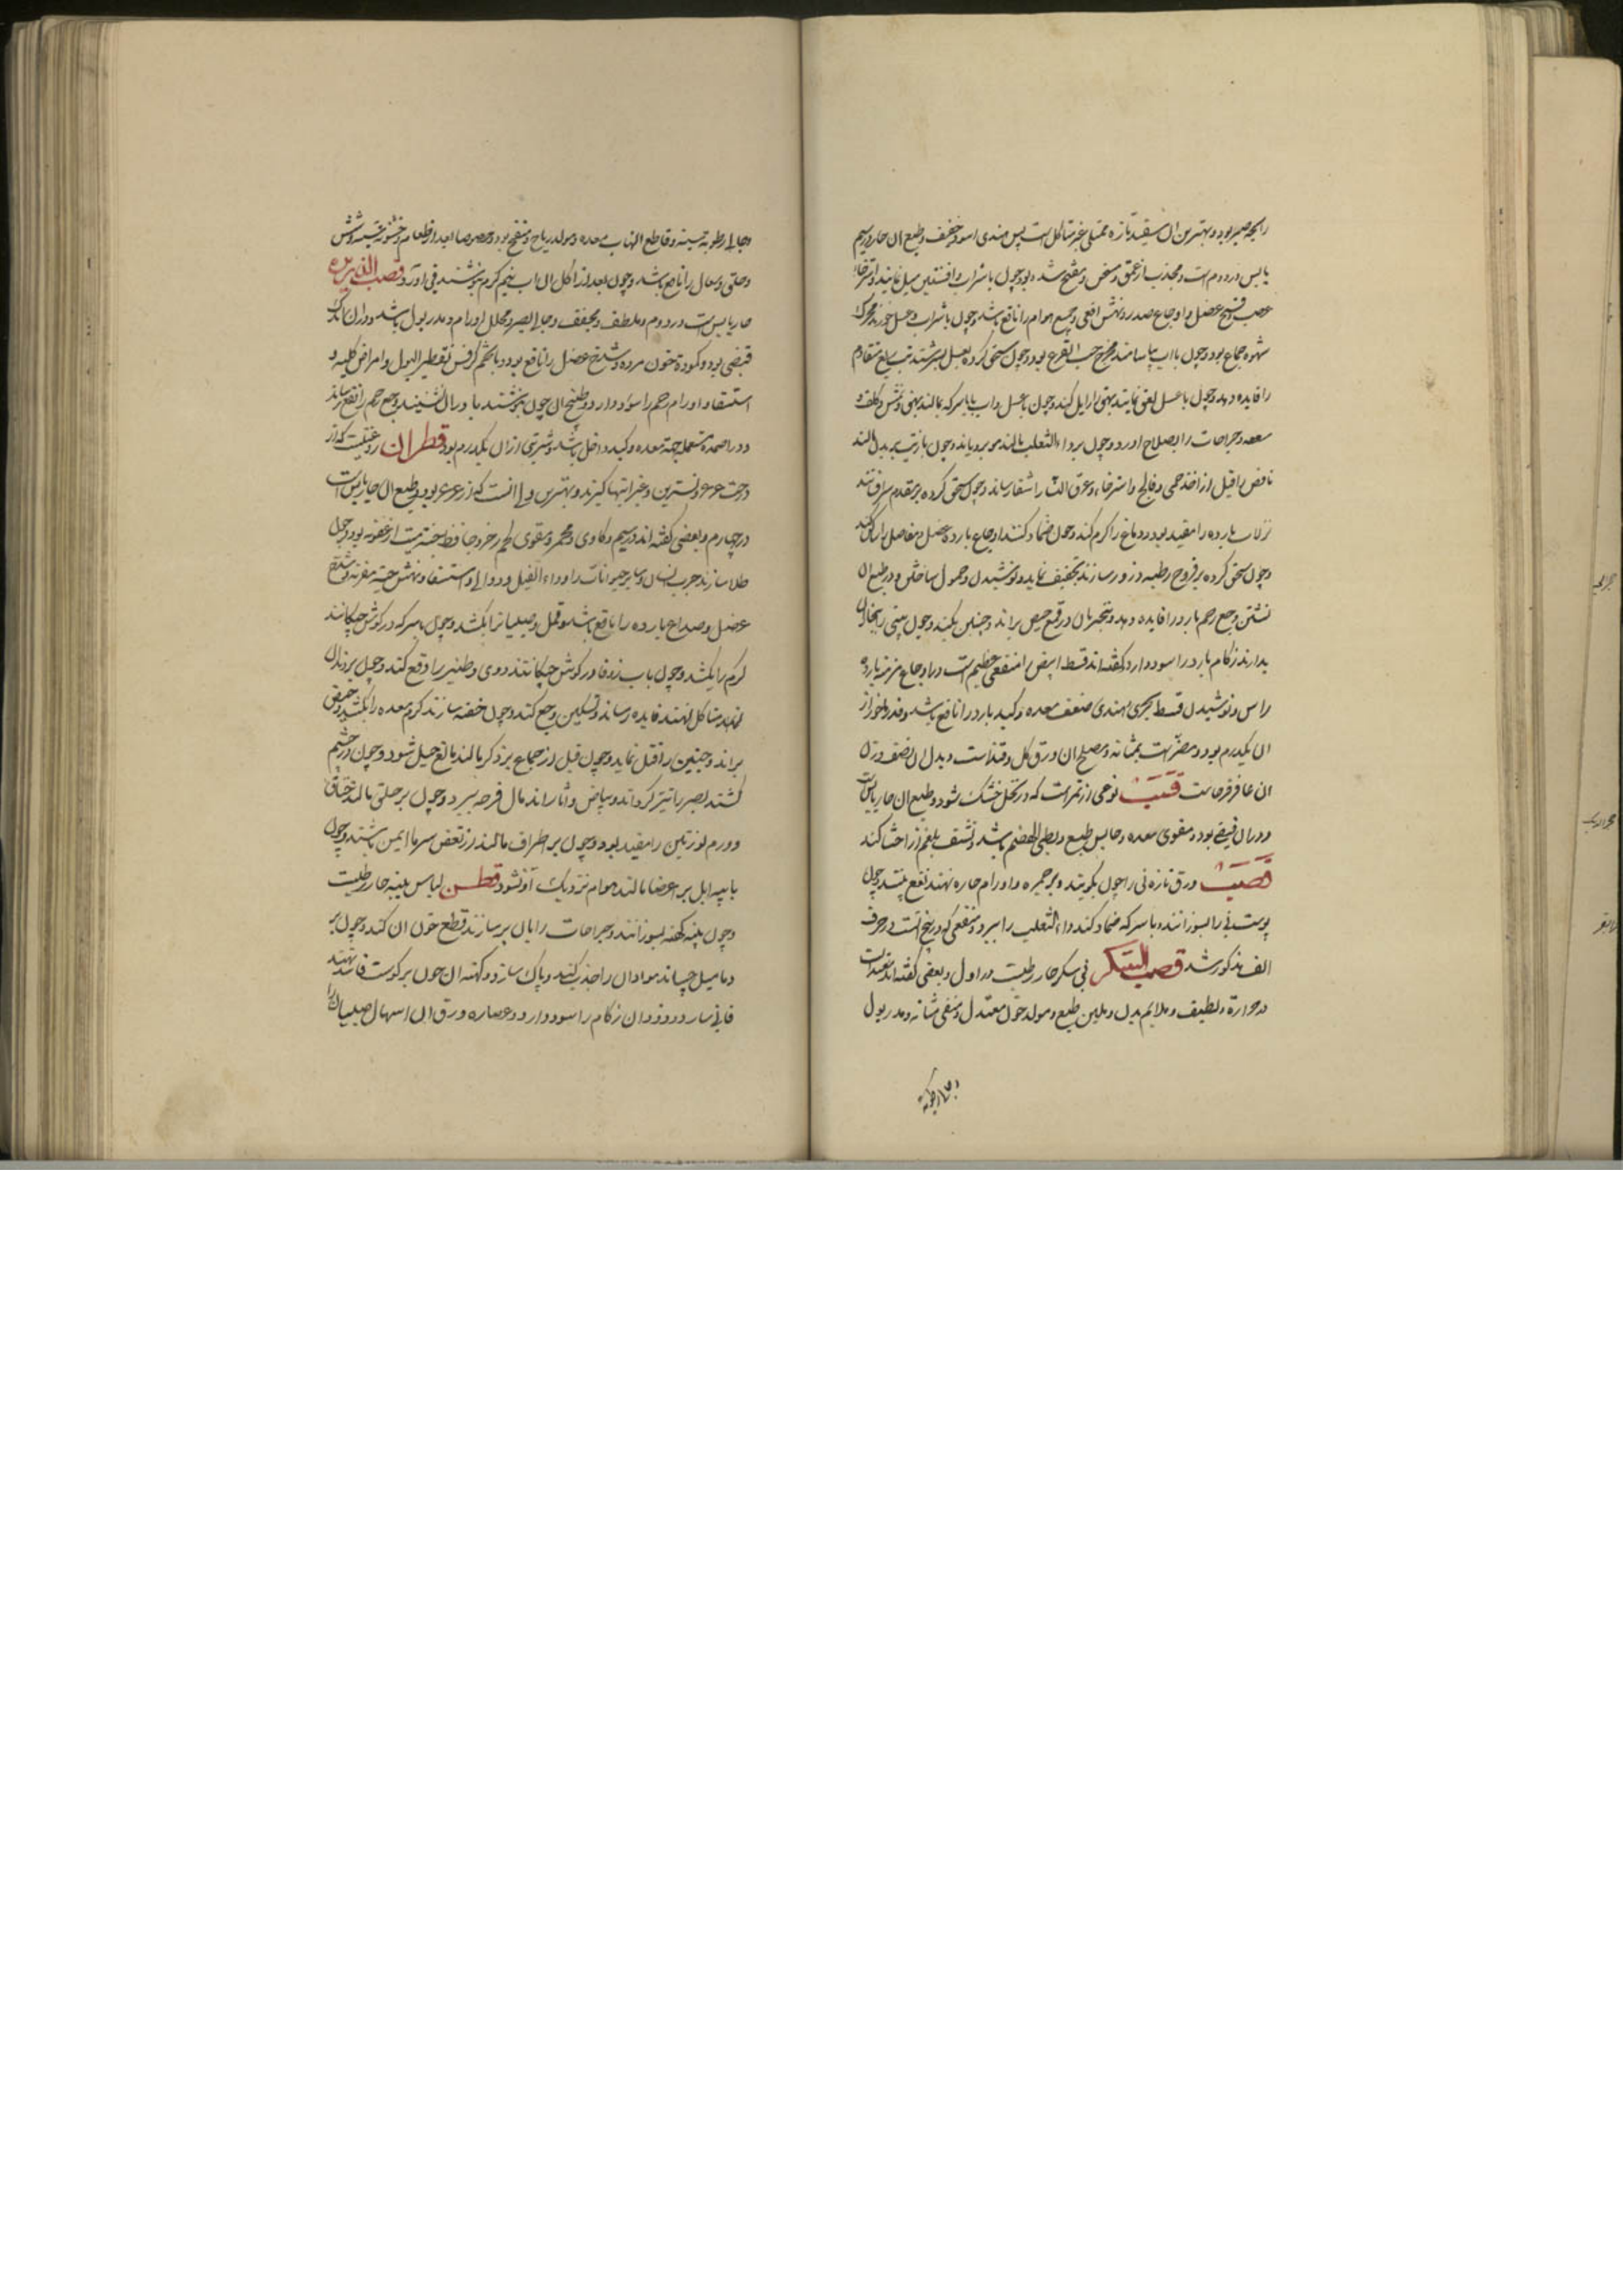 رایحه صبر بود و بهترین ان سفید تازه ممتلی غیر متاکل است پس هندی اسود خفیف و طبع ان حار در سیم
یابس در دوم است و مجذب از عمق و مسخن و مفتح سده بود و چون با شراب و افسنتین میل نمایند و استرخاء
عصب و فسخ عضل و اوجاع صدر و نهش افعی و جمیع هوام را نافع باشد و چون با شراب و عسل خورند محرک
شهوة جماع بود و چون با اب بیاشامند مخرج حب القرع بود و چون سحق کرده بعسل بسرشند تب بلغم متقادم
را فایده دهد و چون با عسل لعق نمایند بهق را زایل کند و چون با عسل و اب یا با سرکه بمالند بهق و نمش و کلف و
سعفه و جراحات را بصلاح اورد و چون بر داء الثعلب بمالند مو برویاند و چون با زیت بر بدن مالند
نافض را قبل از اخذ حمی و فالج و استرخاء و عرق النسا را شفا رساند و چون سحق کرده بر مقدم سر افشانند
نزلات بارده را مفید بود و دماغ را گرم کند و چون ضماد کنند اوجاع بارده عضل و مفاصل را ساکن کند
و چون سحق کرده بر قروح رطبه ذرور سازند تجفیف نماید و نوشیدن و حمول ساختن و در طبیخ ان
نشستن وجع رحم بارد را فایده دهد و تبخیر بان در قمع حیض براند و جنین بکشد و چون بینی را ببخار ان
بدارند زکام بارد را سود دارد و گفته اند قسط ابیض را منفعتی عظیم است در اوجاع مزمنه بارده
راس و نوشیدن قسط بحری و هندی ضعف معده و کبد بارد را نافع باشد و قدر ماخوذ از
ان یکدرم بود و مضر است بمثانه و مصلح ان ورق گل و قند است و بدل ان نصف وزن
ان عاقرقرحاست قسب نوعی از تمر است که در نخل خشک شود و طبع ان حار یابس است
و در ان قبض بود و مقوی معده و حابس طبع و بطی الهضم باشد و نشف بلغم از احشا کند
قصب ورق تازه نی را چون بکوبند و بر حمره و اورام حاره نهند نفع بخشد و چون
پوست نی را بسوزانند و با سرکه ضماد کنند داء الثعلب را ببرد و منفعتی که در بیخ انست در حرف
الف مذکور شد قصب السکر نی سکر حار رطبست در اول و بعضی گفته اند معتدلست
در حرارة و لطیف و ملایم بدن و ملین طبع و مولد خون معتدل و منقی مثانه و مدر بول
و جالی رطوبة
و جالی رطوبة سینه و قاطع التهاب معده و مولد ریاح و منفخ بود و خصوصا بعد از طعام و خشونة سینه و شش
و حلق و سعال را نافع باشد و چون بعد از اکل ان اب نیم گرم بنوشند قی اورد قصب الذریره
حار یابس است در دوم و ملطف و مجفف و جالی بصر و محلل اورام و مدر بول باشد و در ان اندک
قبضی بود و کمودة خون مرده و شدخ عضل را نافع بود و با تخم کرفس تقطیر البول و امراض کلیه و
استسقا و اورام رحم را سود دارد و طبیخ ان چون بنوشند یا در ان نشینند وجع رحم را نفع رساند
و در اضمده مستعمله جهة معده و کبد داخل باشد و شربتی از ان یکدرم بود قطران روغنیست که از
درخت عرعر و نسترین و غیر اینها گیرند و بهترین وی انست که از عرعر بود و طبع ان حار یابس است
در چهارم و بعضی گفته اند در سیم و کاوی و محمر و مقوی لحم رخو و حافظ جثه میت از عفونه بود و چون
طلا سازند جرب انسان و سایر حیوانات را و داء الفیل و دوالی و استسقا و نهش حیه مقرنه و شدخ
عضل و صداع بارده را نافع باشد و قمل و صیبان را بکشد و چون با سرکه در گوش چکانند
کرم را بکشد و چون با اب زوفا در گوش چکانند دوی و طنین را دفع کند و چون بر دندان
متاکل نهند فایده رساند و تسکین وجع کند و چون حقنه سازند کرم معده را بکشد و حیض
براند و جنین را قتل نماید و چون قبل از جماع بر ذکر بمالند مانع حبل شود و چون در چشم
کشند بصر را تیز گرداند و بیاض و اثار اندمال قرحه ببرد و چون بر حلق بمالند خناق
و ورم لوزتین را مفید بود و چون بر اطراف مالند از تعفن سرما ایمن باشند و چون
با پیه ایل بر اعضا مالند هوام نزدیک او نشود قطن لباس پنبه حار رطبست
و چون پنبه کهنه بسوزانند و جراحات را بان پر سازند قطع خون ان کند و چون بر
دمامیل چسبانند مواد ان را جذب کند و پاک سازد و کهنه ان چون بر گوشت فاسد نهند
فانی سازد و دود ان زکام را سود دارد و عصاره ورق ان اسهال صبیان را